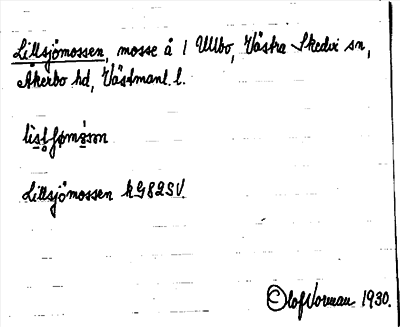 Lillsjömossen, mosse å 1 Ullbo, Västra Skedvi sn,
Åkerbo hd, Västmanl. l.
Lillsjömossen kG82SV.
Olof Vorman 1930.